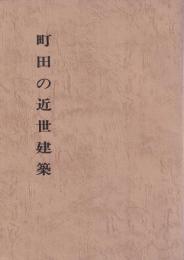 町田の近世建築